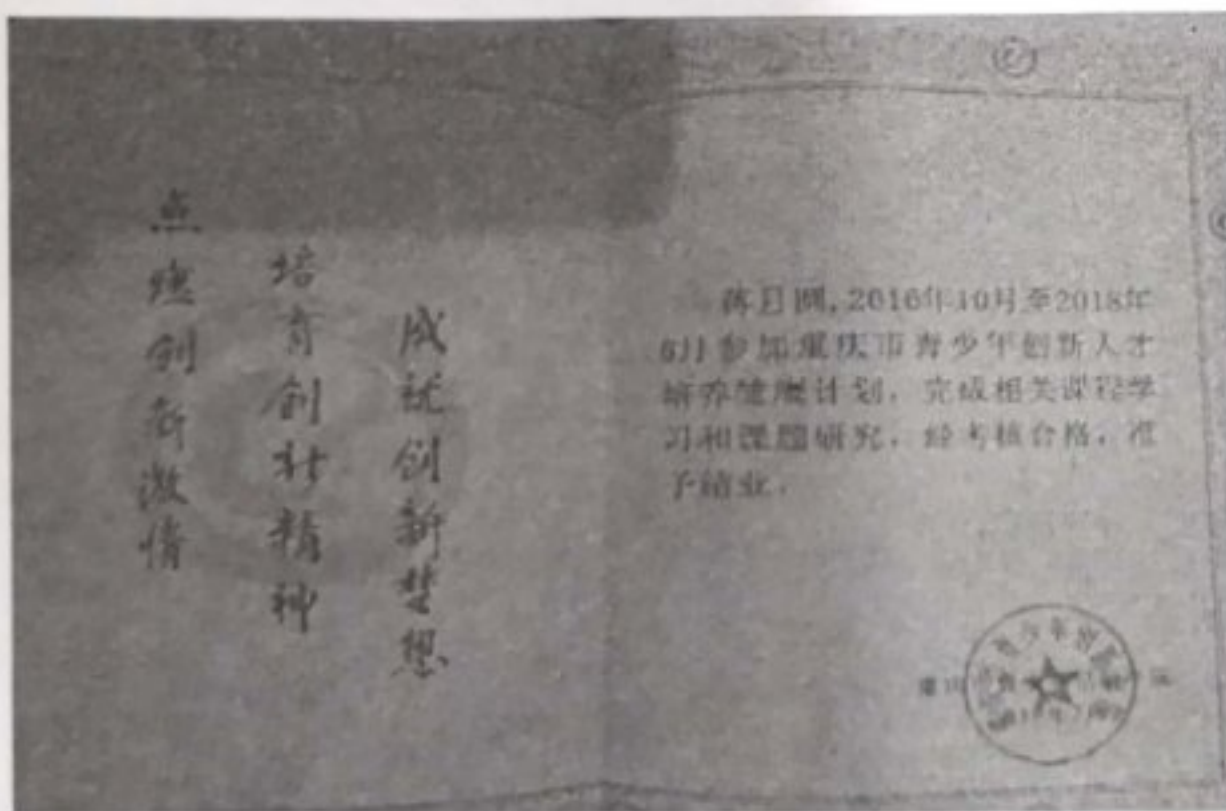 点燃创新激情
培育创新精神
成就创新梦想
2016年10月至2018年
6月参加重庆市青少年创新人才
培养雏鹰计划，完成相关课程学
习和课题研究，经考核合格，准
予结业。